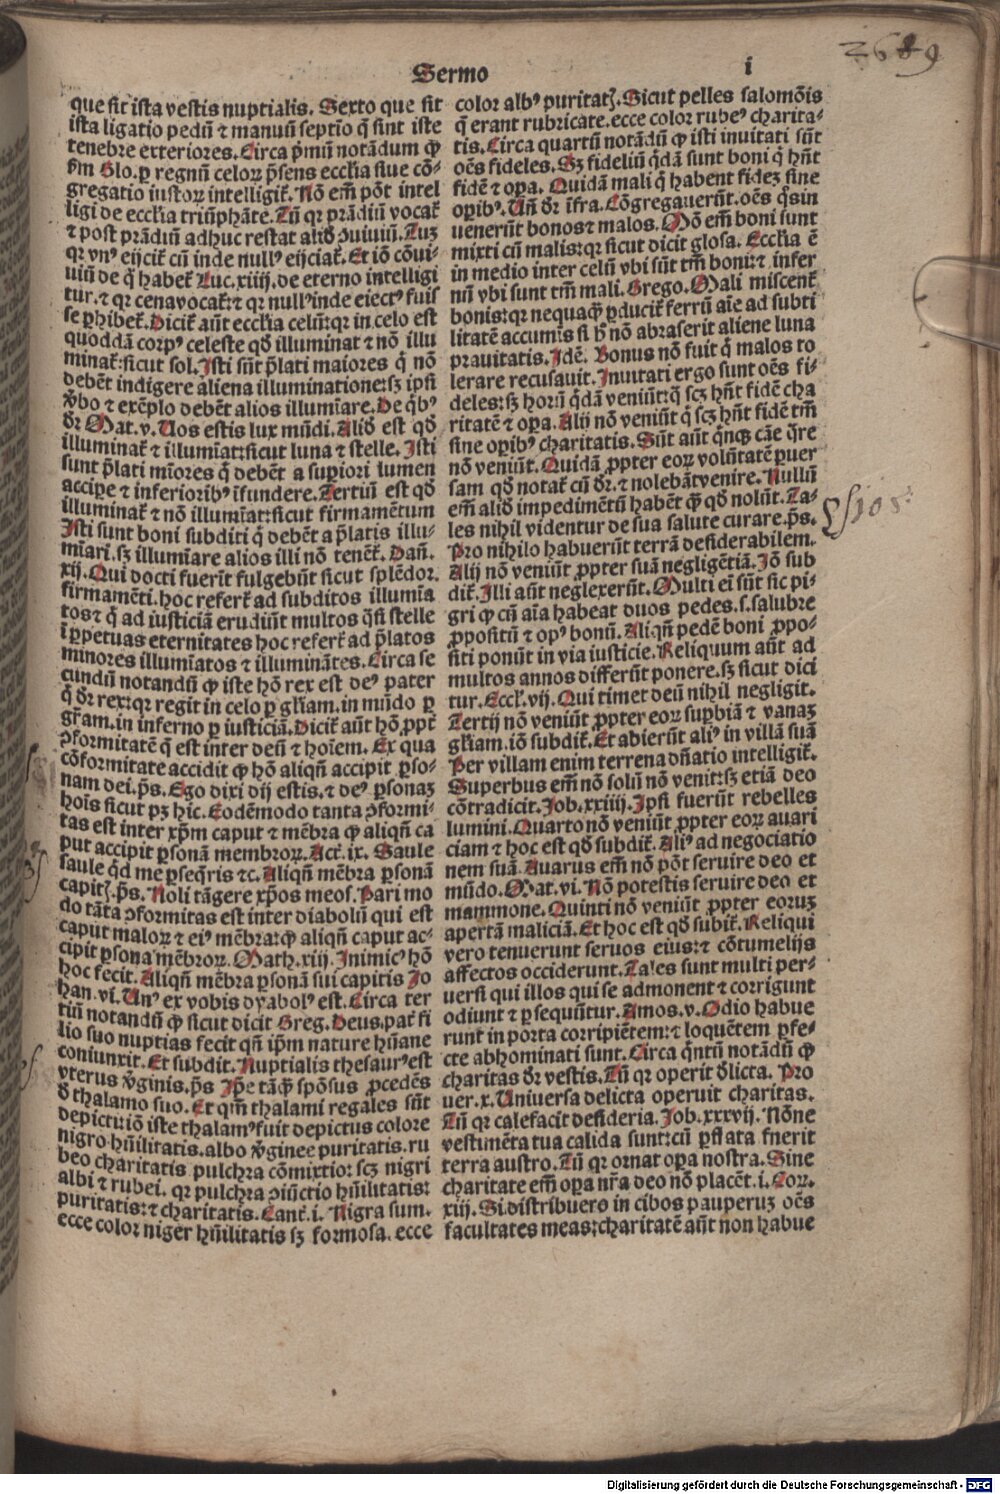 Sermo
i
2689
que sit ista vestis nuptialis. Sexto que sit
ista ligatio pedū ⁊ manuū septīo q̄ sint iste
tenebre exteriores. Circa pͥmū notādum ꝙ
ẜm Glo. ꝑ regnū celoꝝ p̄sens ecclīa siue cō-
gregatio iustoꝝ intelligit̄. Nō em̄ pōt intel
ligi de ecclīa triūphāte. Tū qꝛ prādiū vocat̄
⁊ post prādiū adhuc restat aliđ ↄuiuiū. Tuꝫ
qꝛ vnꝰ eijcit̄ cū inde nullꝰ eijciat̄. Et iō cōui-
uiū de q̄ habet̄ Luc. xiiij. de eterno intelligi
tur. ⁊ qꝛ cena vocat̄: ⁊ qꝛ nullꝰ inde eiectꝰ fuis
se ꝑhibet̄. Dicit̄ aūt ecclīa celū: qꝛ in celo est
quoddā corpꝰ celeste qđ illuminat ⁊ nō illu
minat̄: sicut sol. Isti sūt p̄lati maiores q̄ nō
debēt indigere aliena illuminatione: sꝫ ipsi
ṽbo ⁊ exēplo debēt alios illumīare. De qͥbꝰ
đr Mat. v. Uos estis lux mūdi. Aliđ est qđ
illuminat̄ ⁊ illumīat: sicut luna ⁊ stelle. Isti
sunt p̄lati mīores q̄ debēt a suꝑiori lumen
accipe ⁊ inferioribꝰ īfundere. Tertiū est qđ
illuminat̄ ⁊ nō illumīat: sicut firmamētum
Isti sunt boni subditi q̄ debēt a p̄latis illu-
mīari. sꝫ illumīare alios illi nō tenēt̄. Dañ.
xij. Qui docti fuerīt fulgebūt sicut splēdor.
firmamēti. hoc refert̄ ad subditos illumīa
tos ⁊ q̄ ad iusticiā erudiūt multos qͣsi stelle
ī ꝑpetuas eternitates hoc refert̄ ad p̄latos
minores illumīatos ⁊ illuminātes. Circa se
cundū notandū ꝙ iste hō rex est deꝰ pater
q̄ đr rex: qꝛ regit in celo ꝑ gl̄iam. in mūdo ꝑ
gr̄am. in inferno ꝑ iusticiā. Dicit̄ aūt hō ꝓpt̄
ↄformitatē q̄ est inter deū ⁊ hoīem. Ex qua
cōformitate accidit ꝙ hō aliqn̄ accipit ꝑso-
nam dei. p̄s. Ego dixi dij estis. ⁊ deꝰ ꝑsonaꝫ
hoīs sicut pꝫ hic. Eodēmodo tanta ↄformi-
tas est inter xp̄m caput ⁊ mēbra ꝙ aliqn̄ ca
put accipit ꝑsonā membroꝝ. Act̄. ix. Saule
saule qͥd me ꝑseq̄ris ⁊c. Aliqn̄ mēbra ꝑsonā
capitꝭ. p̄s. Noli tāgere xp̄os meos. Pari mo
do tāta ↄformitas est inter diabolū qui est
caput maloꝝ ⁊ eiꝰ mēbra: ꝙ aliqn̄ caput ac-
cipit ꝑsonā mēbroꝝ. Math. xiij. Inimicꝰ hō
hoc fecit. Aliqn̄ mēbra ꝑsonā sui capitis Jo
han. vi. Unꝰ ex vobis dyabolꝰ est. Circa ter
tiū notandū ꝙ sicut dicit Greg. Deus pat̄ fi
lio suo nuptias fecit qn̄ ip̄m nature hūane
coniunxit. Et subdit. Nuptialis thesaurꝰ est
vterus ṽginis. p̄s Ip̄e tāqͣ̄ spōsus ꝓcedēs
đ thalamo suo. Et qm̄ thalami regales sūt
depicti: iō iste thalamꝰ fuit depictus colore
nigro hūilitatis. albo ṽginee puritatis. ru
beo charitatis pulchra cōmixtio: scꝫ nigri
albi ⁊ rubei. qꝛ pulchra ↄiūctio hūilitatis:
puritatis: ⁊ charitatis. Cant̄. i. Nigra sum.
ecce color niger hūilitatis sꝫ formosa. ecce
color albꝰ puritatꝭ. Sicut pelles salomōis
q̄ erant rubricate. ecce color rubeꝰ charita-
tis. Circa quartū notādū ꝙ isti inuitati sūt
oēs fideles. Sꝫ fideliū qͥdā sunt boni q̄ hn̄t
fidē ⁊ oꝑa. Quidā mali q̄ habent fideꝫ sine
oꝑibꝰ. Un̄ đr īfra. Cōgregauerūt. oēs qͦs in
uenerūt bonos ⁊ malos. Mō em̄ boni sunt
mixti cū malis: qꝛ sicut dicit glosa. Ecclīa ē
in medio inter celū vbi sūt tm̄ boni: ⁊ infer
nū vbi sunt tm̄ mali. Grego. Mali miscent̄
bonis: qꝛ nequaqͣ̄ ꝑducit̄ ferrū aīe ad subti
litatē accumīs si h̄ nō abraserit aliene luna
prauitatis. Idē. Bonus nō fuit q̄ malos to
lerare recusauit. Inuitati ergo sunt oēs fi-
deles: sꝫ horū qͥdā veniūt: q̄ scꝫ hn̄t fidē cha
ritatē ⁊ oꝑa. Alij nō veniūt q̄ scꝫ hn̄t fidē tm̄
sine oꝑibꝰ charitatis. Sūt aūt qͥnqꝫ cāe qͣre
nō veniūt. Quidā ꝓpter eoꝝ volūtatē ꝑuer
sam qđ notat̄ cū đr. ⁊ nolebāt venire. Nullū
em̄ aliđ impedimētū habēt qͣ̄ qđ nolūt. Ta-
les nihil videntur de sua salute curare. p̄s.
Pro nihilo habuerūt terrā desiderabilem.
Alij nō veniūt ꝓpter suā negligētiā. Iō sub
dit̄. Illi aūt neglexerūt. Multi eī sūt sic pi-
gri ꝙ cū aīa habeat duos pedes. s. salubre
ꝓpositū ⁊ opꝰ bonū. Aliqn̄ pedē boni ꝓpo-
siti ponūt in via iusticie. Reliquum aūt ad
multos annos differūt ponere. sꝫ sicut dici
tur. Eccł. vij. Qui timet deū nihil negligit.
Tertij nō veniūt ꝓpter eoꝝ suꝑbiā ⁊ vanaꝫ
gl̄iam. iō subdit̄. Et abierūt aliꝰ in villā suā
Per villam enim terrena dn̄atio intelligit̄.
Superbus em̄ nō solū nō venit: sꝫ etiā deo
cōtradicit. Job. xxiiij. Ipsi fuerūt rebelles
lumini. Quarto nō veniūt ꝓpter eoꝝ auari
ciam ⁊ hoc est qđ subdit̄. Aliꝰ ad negociatio
nem suā. Auarus em̄ nō pōt seruire deo et
mūdo. Mat. vi. Nō potestis seruire deo et
mammone. Quinti nō veniūt ꝓpter eoruꝫ
apertā maliciā. Et hoc est qđ subit̄. Reliqui
vero tenuerunt seruos eius: ⁊ cōtumelijs
affectos occiderunt. Tales sunt multi per-
uersi qui illos qui se admonent ⁊ corrigunt
odiunt ⁊ ꝑsequūtur. Amos. v. Odio habue
runt in porta corripiētem: ⁊ loquētem ꝑfe-
cte abhominati sunt. Circa qͥntū notādū ꝙ
charitas đr vestis. Tū qꝛ operit đlicta. Pro
uer. x. Uniuersa delicta operuit charitas.
Tū qꝛ calefacit desideria. Job. xxxvij. Nōne
vestimēta tua calida sunt: cū ꝑflata fuerit
terra austro. Tū qꝛ ornat oꝑa nostra. Sine
charitate em̄ oꝑa nr̄a deo nō placēt. i. Coꝝ.
xiij. Si distribuero in cibos pauperuꝫ oēs
facultates meas: charitatē aūt non habue
Digitalisierung gefördert durch die Deutsche Forschungsgemeinschaft - DFG